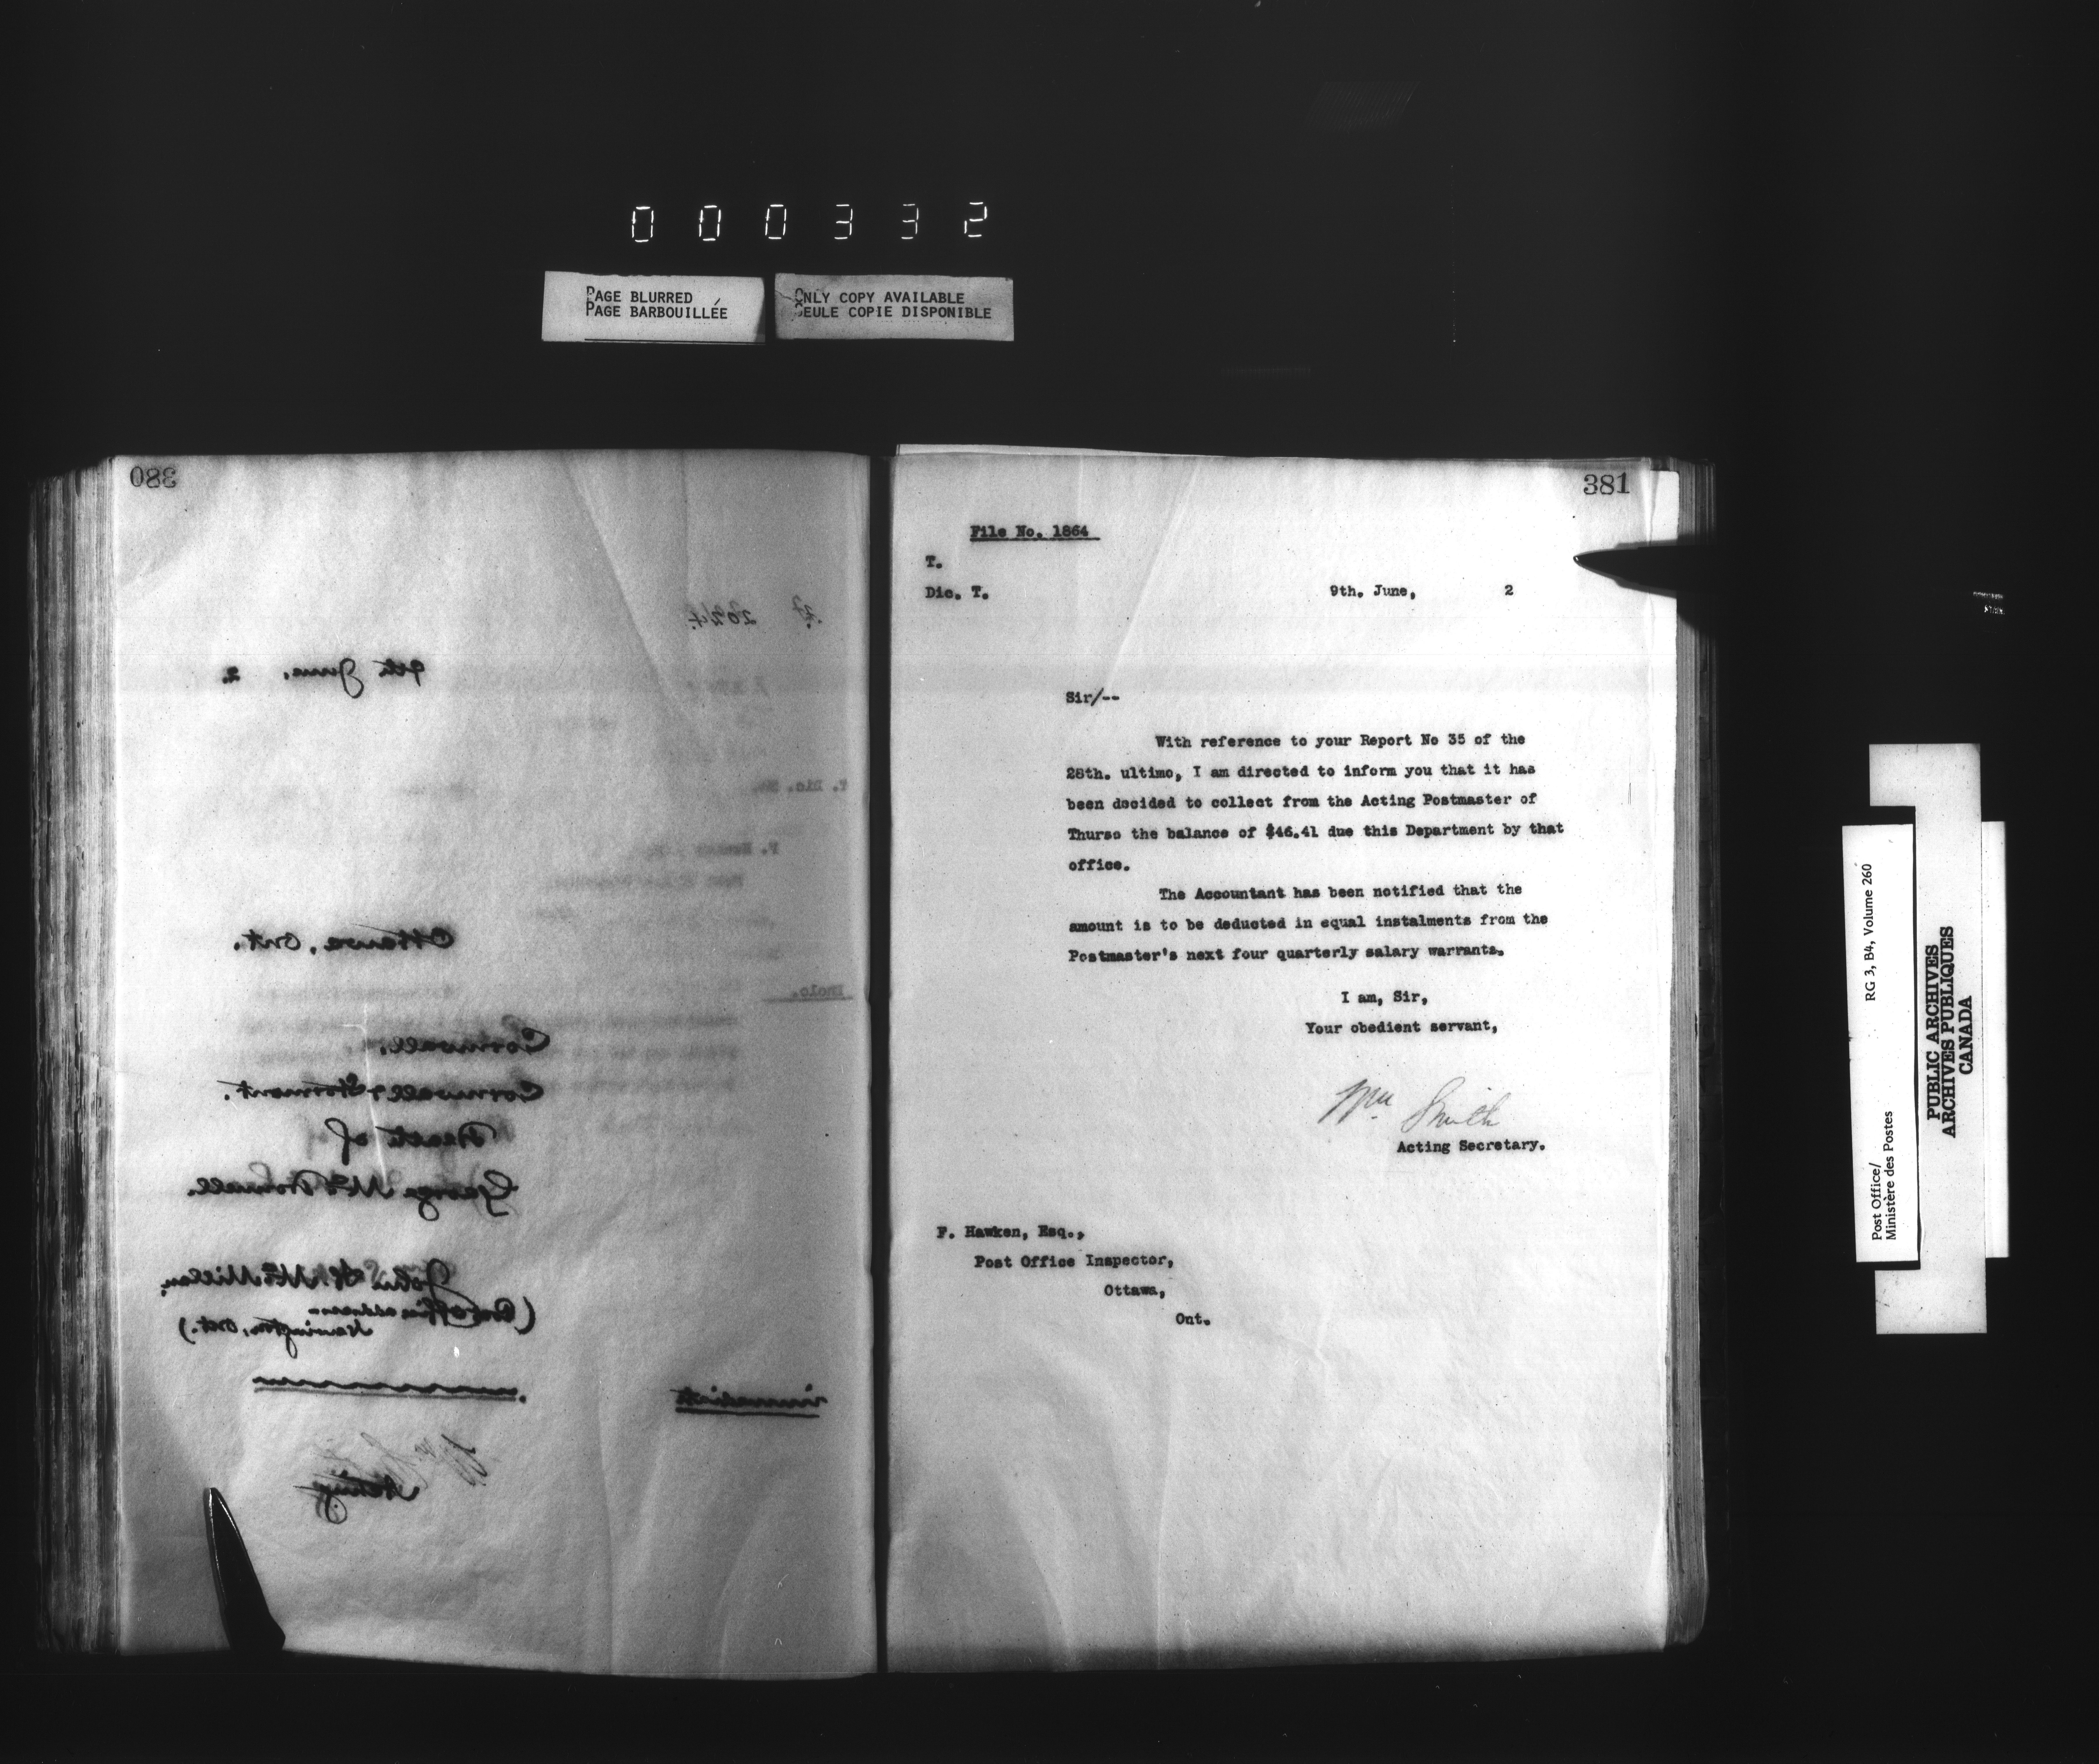 000332
PAGE BLURRED
PAGE BARBOUILLÉE
ONLY COPY AVAILABLE
SEULE COPIE DISPONIBLE
380
2024
9th June, 2.
Ottawa, Ont.
Cornwall.
Cornwall & Stormont.
Death of
George McDonell.
John McMillan,
(Post Office address
Newington, Ont.)
immediate
Acting
T. Dic.
Enclo.
381
File No. 1864
T.
Dic. T.
9th. June, 2
Sir/--
With reference to your Report No 35 of the
28th. ultimo, I am directed to inform you that it has
been decided to collect from the Acting Postmaster of
Thurso the balance of $46.41 due this Department by that
office.
The Accountant has been notified that the
amount is to be deducted in equal instalments from the
Postmaster's next four quarterly salary warrants.
I am, Sir,
Your obedient servant,
Wm Smith
Acting Secretary.
F. Hawken, Esq.,
Post Office Inspector,
Ottawa,
Ont.
Post Office/
Ministère des Postes
RG 3, B4, Volume 260
PUBLIC ARCHIVES
ARCHIVES PUBLIQUES
CANADA